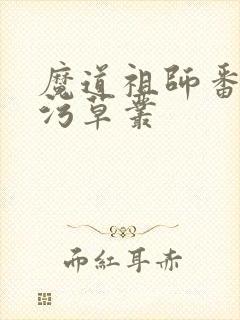 魔道祖師番
污草叢
而紅耳赤